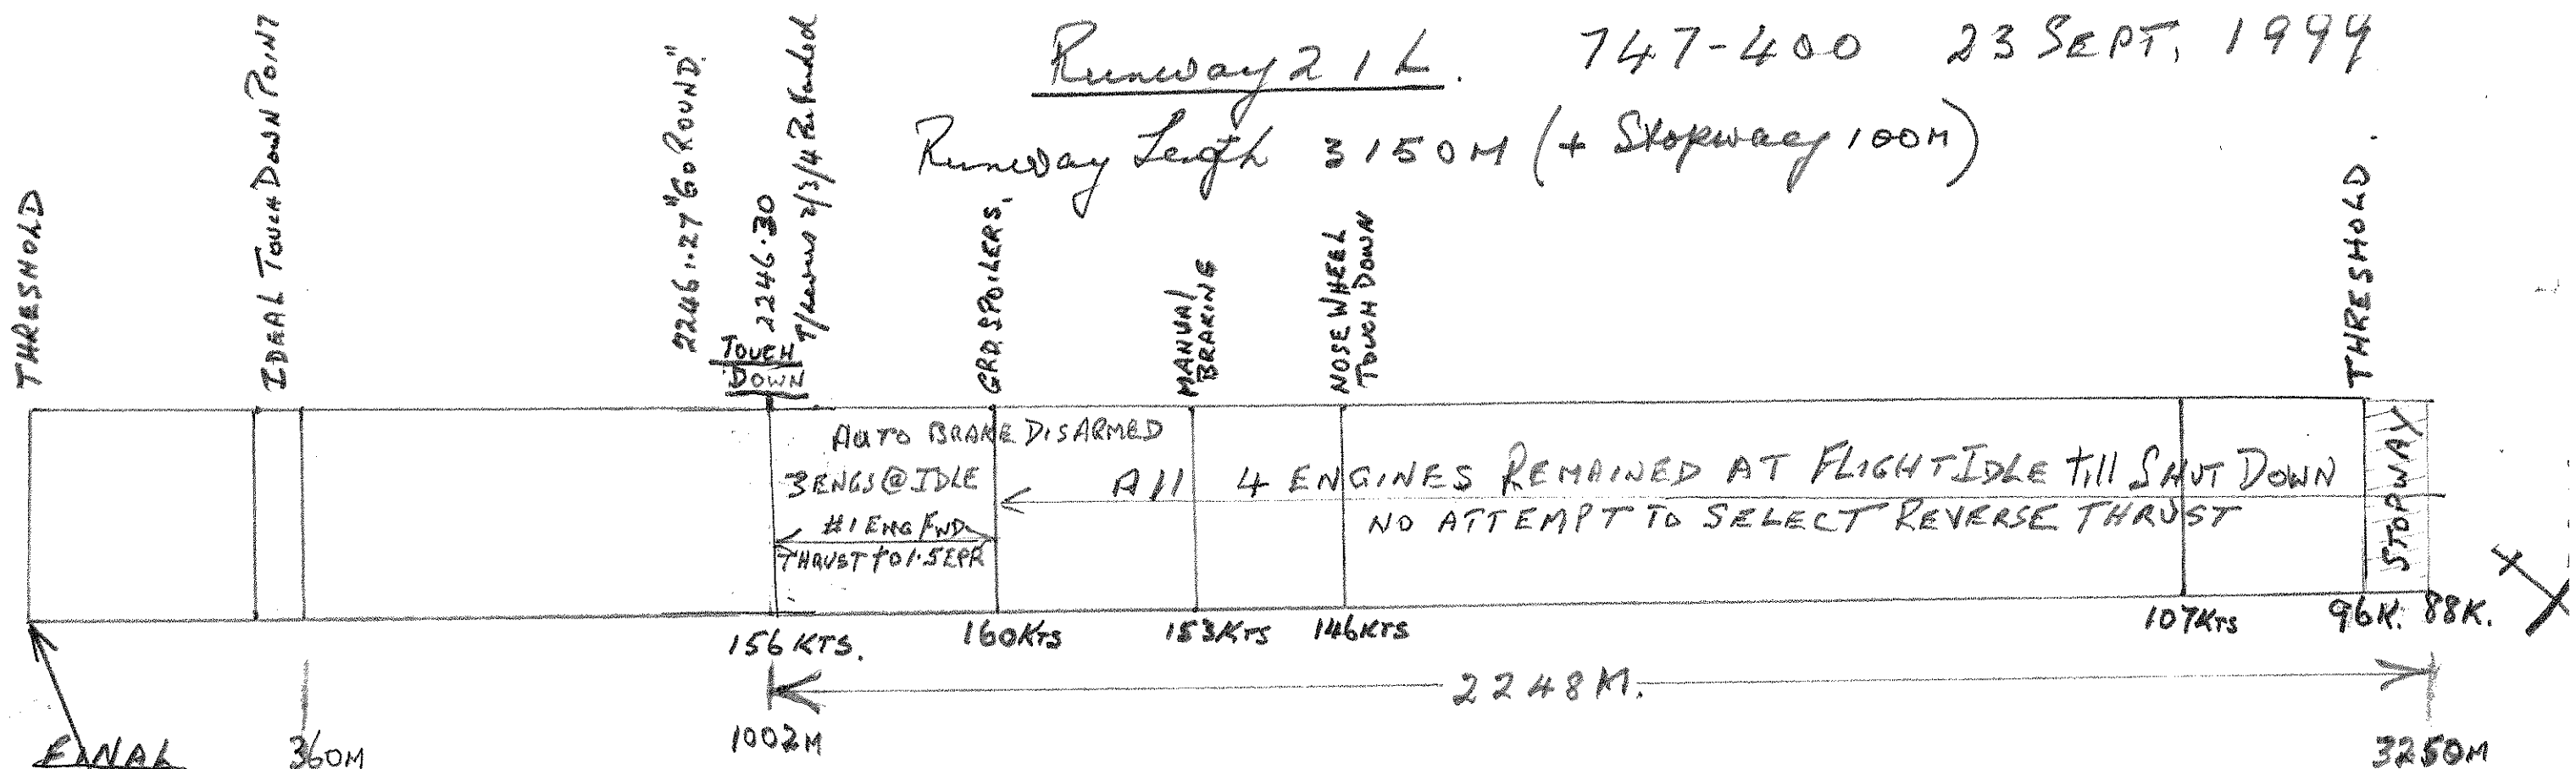 Runway 21L. 747-400 23 SEPT, 1999
Runway Length 3150M (+ Stopway 100M)
THRESHOLD
IDEAL TOUCH DOWN POINT
2246:27 "GO ROUND"
TOUCH
DOWN
2246.30
GRD. SPOILERS,
MANUAL
BRAKING
NOSE WHEEL
TOUCH DOWN
THRESHOLD
AUTO BRAKE DISARMED
3 ENGS @ IDLE
#1 ENG FWD
THRUST TO 1.5 EPR
All 4 ENGINES REMAINED AT FLIGHT IDLE till SHUT DOWN
NO ATTEMPT TO SELECT REVERSE THRUST
STOPWAY
156 KTS.
160KTS
153KTS
146KTS
107KTS
96K.
88K.
2248M.
FINAL
360M
1002M
3250M